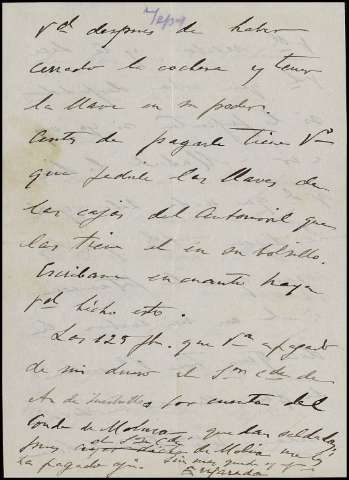 Vd después de haber
cerrado la cochera y tener
la llave en su poder.
Antes de pagarle tiene Vd
que pedirle las llaves de
las cajas del Automóvil que
las tiene el en su bolsillo.
Escribame en cuanto haya
Vd hecho esto.
Las 125 pts. que Va a pagado
de mi dinero al Sor Cde de
por cuenta del
Conde de quedan saldadas
pues el Sr. Cde. de me los
ha pagado aqui. Sin mas queda